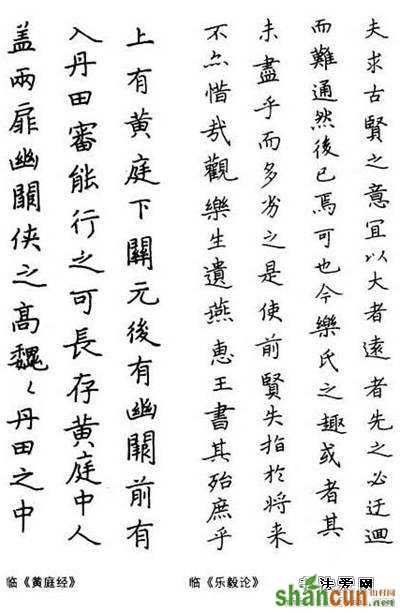 夫求古賢之意宜以大者遠者先之必迂迴
而難通然後已焉可也今樂氏之趣或者其
未盡乎而多劣之是使前賢失指於将来
不亦惜哉觀樂生遺燕惠王書其殆庶乎
上有黄庭下關元後有幽闕前有
入丹田審能行之可長存黄庭中人
盖兩扉幽關侠之高魏〻丹田之中
临《乐毅论》
临《黄庭经》
法爱网
shancun